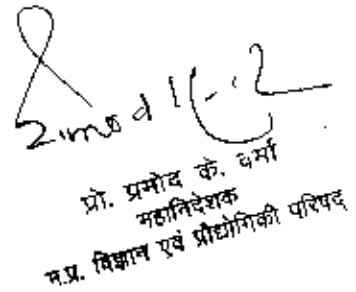 प्रो. प्रमोद के. वर्मा
महानिदेशक
म.प्र. विज्ञान एवं प्रौद्योगिकी परिषद